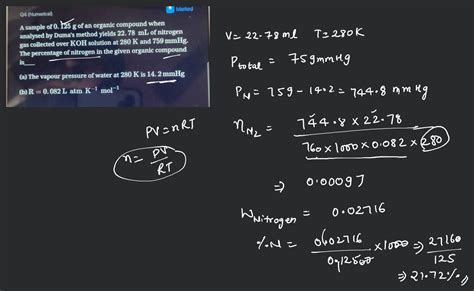 Q4 (Numerical)
A sample of 0.125 g of an organic compound when
analysed by Duma's method yields 22.78 mL of nitrogen
gas collected over KOH solution at 280 K and 759 mmHg.
The percentage of nitrogen in the given organic compound
is
(a) The vapour pressure of water at 280 K is 14.2 mmHg
(b) R = 0.082 L atm K⁻¹ mol⁻¹
PV = nRT
n = PV
RT
V = 22.78 ml T = 280K
Ptotal = 759mmHg
PN = 759 - 14.2 = 744.8 mmHg
nN2 = 744.8 x 22.78
760 x 1000 x 0.082 x 280
⇒ 0.00097
WNitrogen = 0.02716
%N = 0.02716 x 1000 ⇒ 27160
0.12500 125
⇒ 21.72%